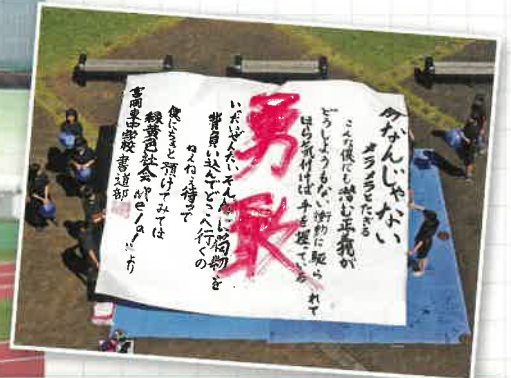 今なんじゃない
メラメラとたぎる
こんな僕にも潜む正義が
どうしようもない衝動に駆られて
ほら気付けば手を握っている
勇敢
いったいぜんたいそんなに荷物を
背負い込んでどこへ行くの
ねえねえ待って
僕にちょっと預けてみては
緑黄色社会 "Mela!"より
富岡東中学校 書道部